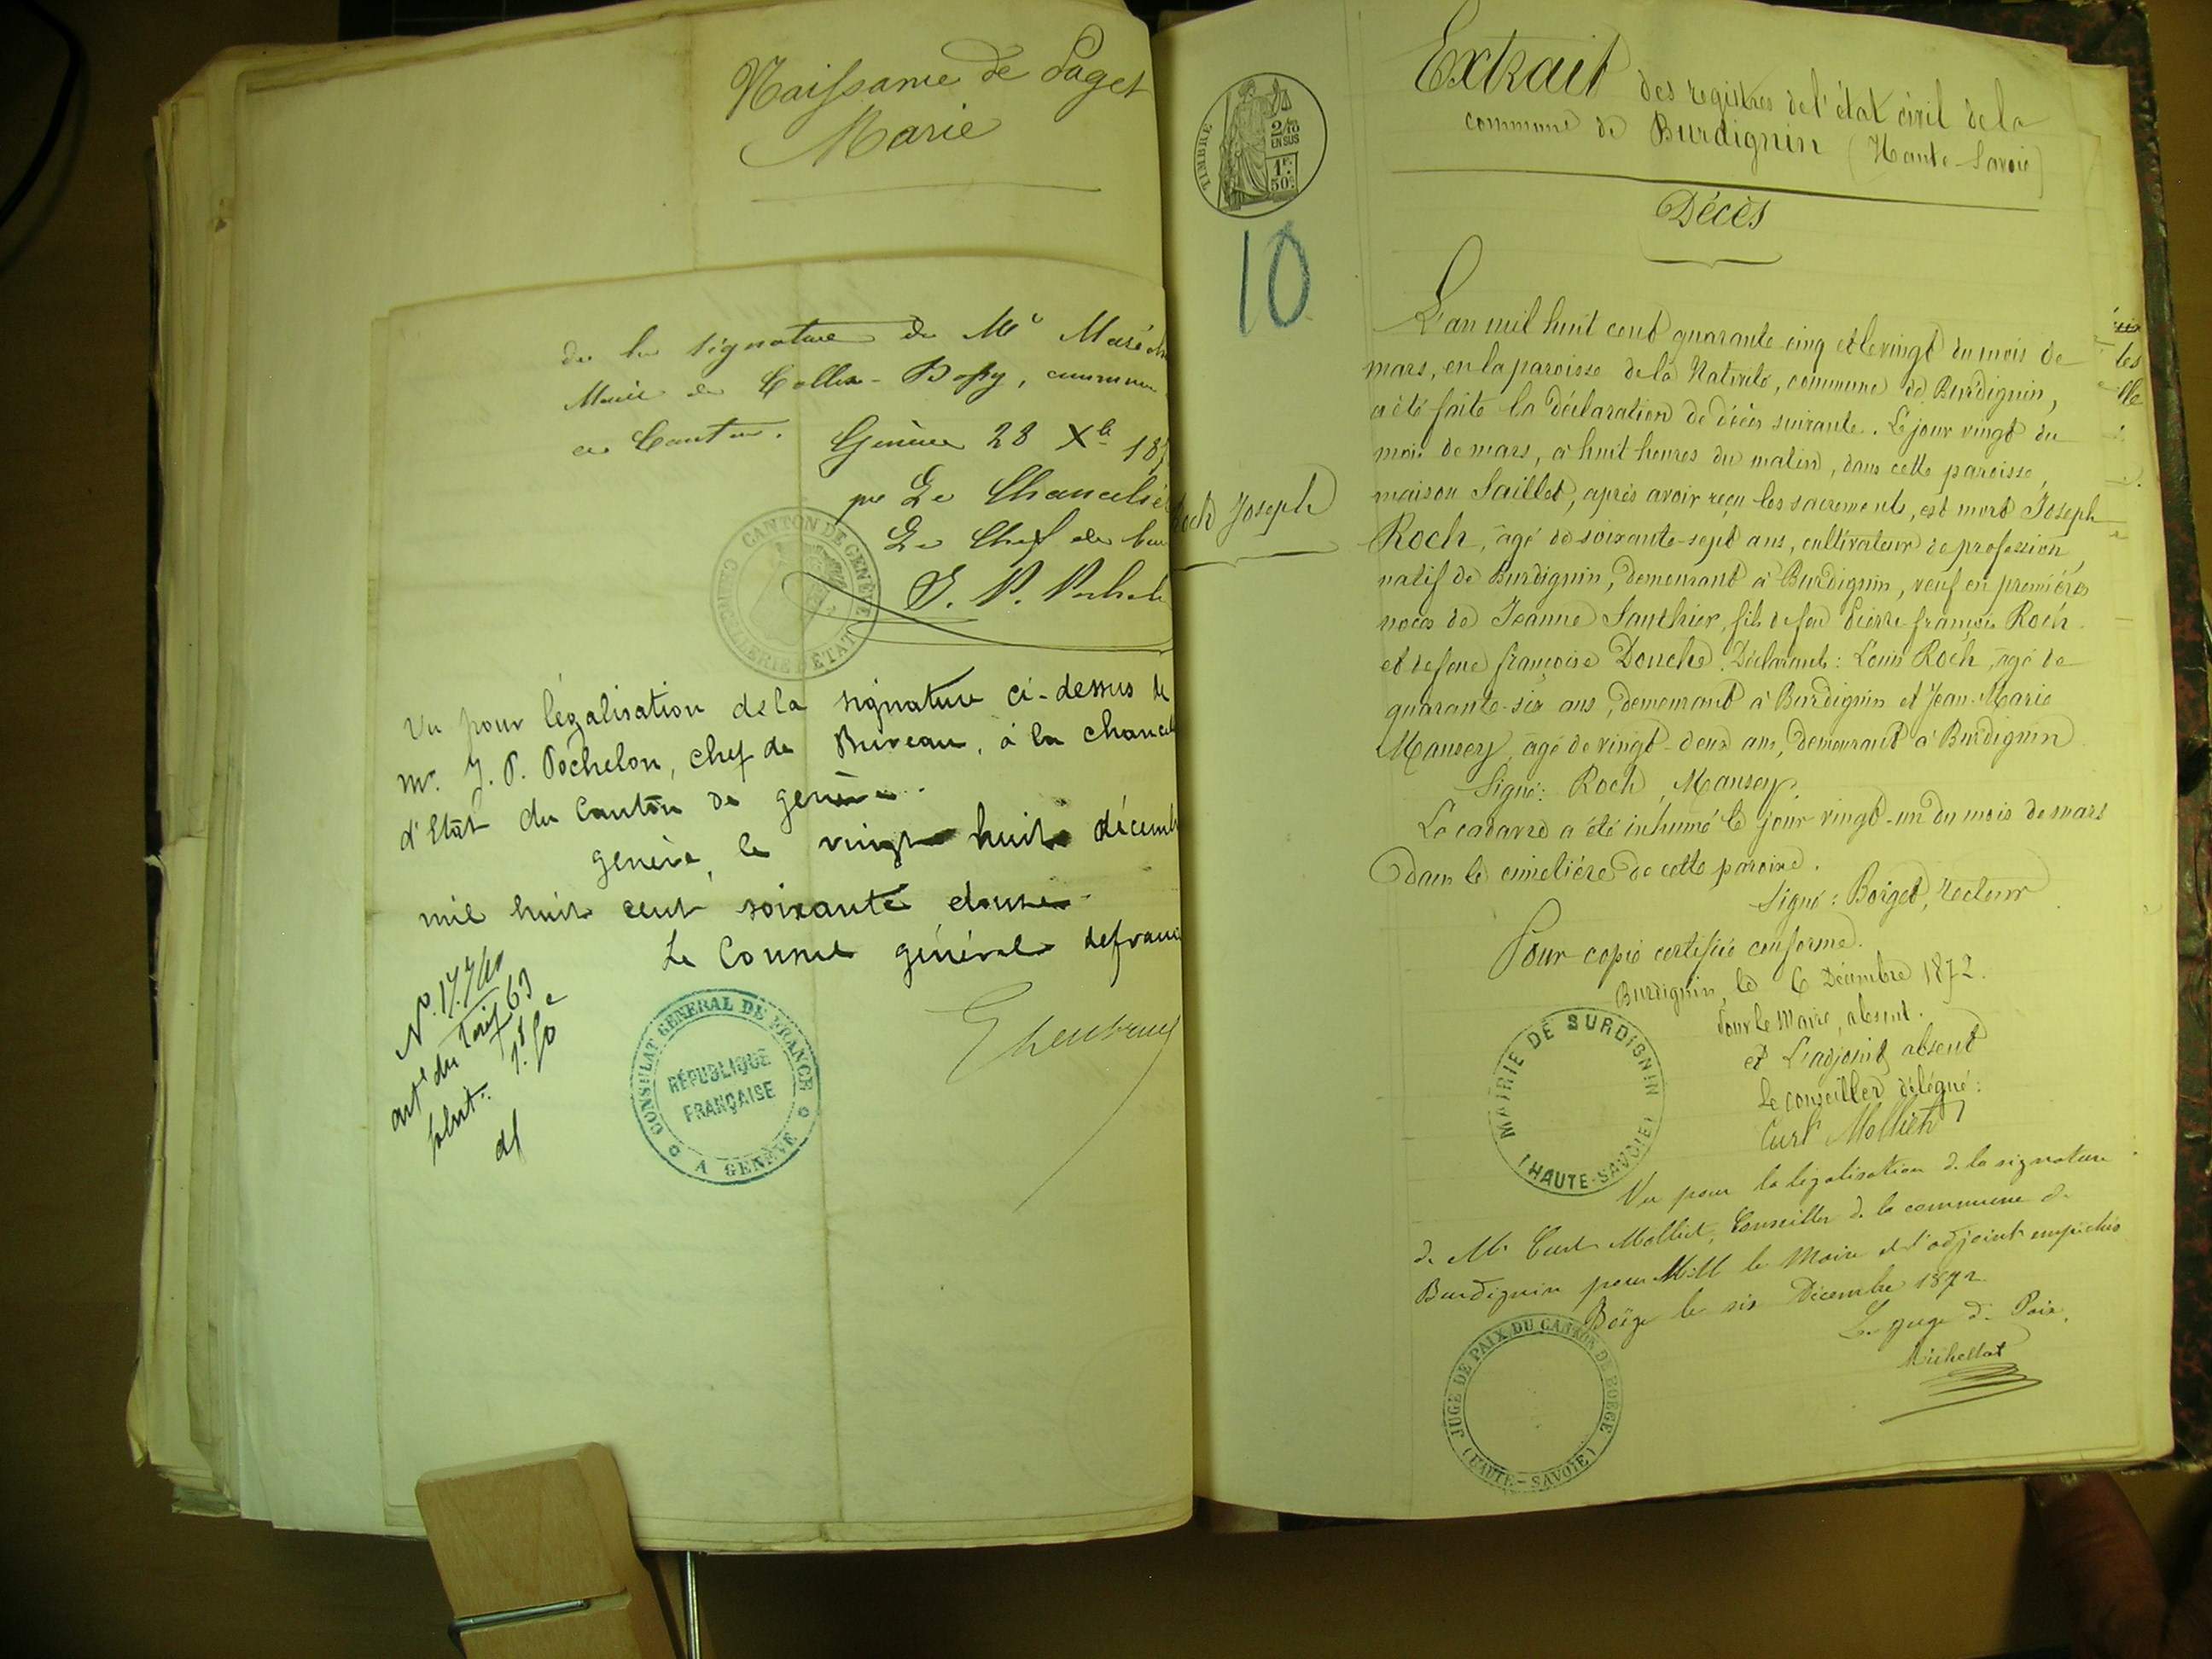 Naissance de Paget
Marie
de la signature de Mr
Maire de Collex-Bossy, commune
ce Canton.
Genève 28 Xb 18
pr Le Chancelie
Le Chef de bu
J. P. Pochelo
CANTON DE GENÈVE
CHANCELLERIE D'ÉTAT
Vu pour légalisation de la signature ci-dessus de
Mr. J. P. Pochelon, chef de Bureau, à la chancel
d'Etat du Canton de genève.
genève, le vingt huit décemb
mil huit cent soixante douze.
Le Consul général de france
art. du tarif 63
1f. 50c
CONSULAT GÉNÉRAL DE FRANCE
A GENÈVE
RÉPUBLIQUE
FRANÇAISE
TIMBRE
2/10
EN SUS
1F.
50c
10
Extrait des registres de l'état civil de la
commune de Burdignin (Haute-Savoie)
Décès
Roch Joseph
L'an mil huit cent quarante cinq et le vingt du mois de
mars, en la paroisse de la Nativité, commune de Burdignin,
a été faite la déclaration de décès suivante. Le jour vingt du
mois de mars, à huit heures du matin, dans cette paroisse,
maison Saillet, après avoir reçu les sacrements, est mort Joseph
Roch, âgé de soixante-sept ans, cultivateur de profession,
natif de Burdignin, demeurant à Burdignin, veuf en premières
noces de Jeanne Santhier, fils de feu Pierre françois Roch
et de feue françoise Donche. Déclarants: Louis Roch, âgé de
quarante-six ans, demeurant à Burdignin et Jean-Marie
Mansey, âgé de vingt-deux ans, demeurant à Burdignin
Signé: Roch, Mansey.
Le cadavre a été inhumé le jour vingt-un du mois de mars
dans le cimetière de cette paroisse.
Signé: Boiget, recteur
Pour copie certifiée conforme.
Burdignin, le 6 Décembre 1872.
Pour le Maire, absent.
et L'adjoint absent
Le conseiller délégué:
Curt Molliet
MAIRIE DE BURDIGNIN
(HAUTE-SAVOIE)
Vu pour la légalisation de la signature
de Mr Curt Molliet, Conseiller de la commune de
Burdignin pour MM le Maire et l'adjoint empêchés
Boëge le six Décembre 1872
Le juge de Paix,
Michellat
JUGE DE PAIX DU CANTON DE BOEGE
(HAUTE-SAVOIE)